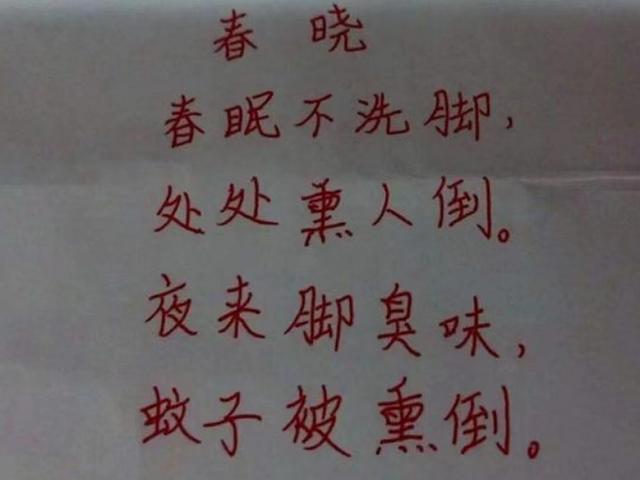 春晓
春眠不洗脚，
处处熏人倒。
夜来脚臭味，
蚊子被熏倒。